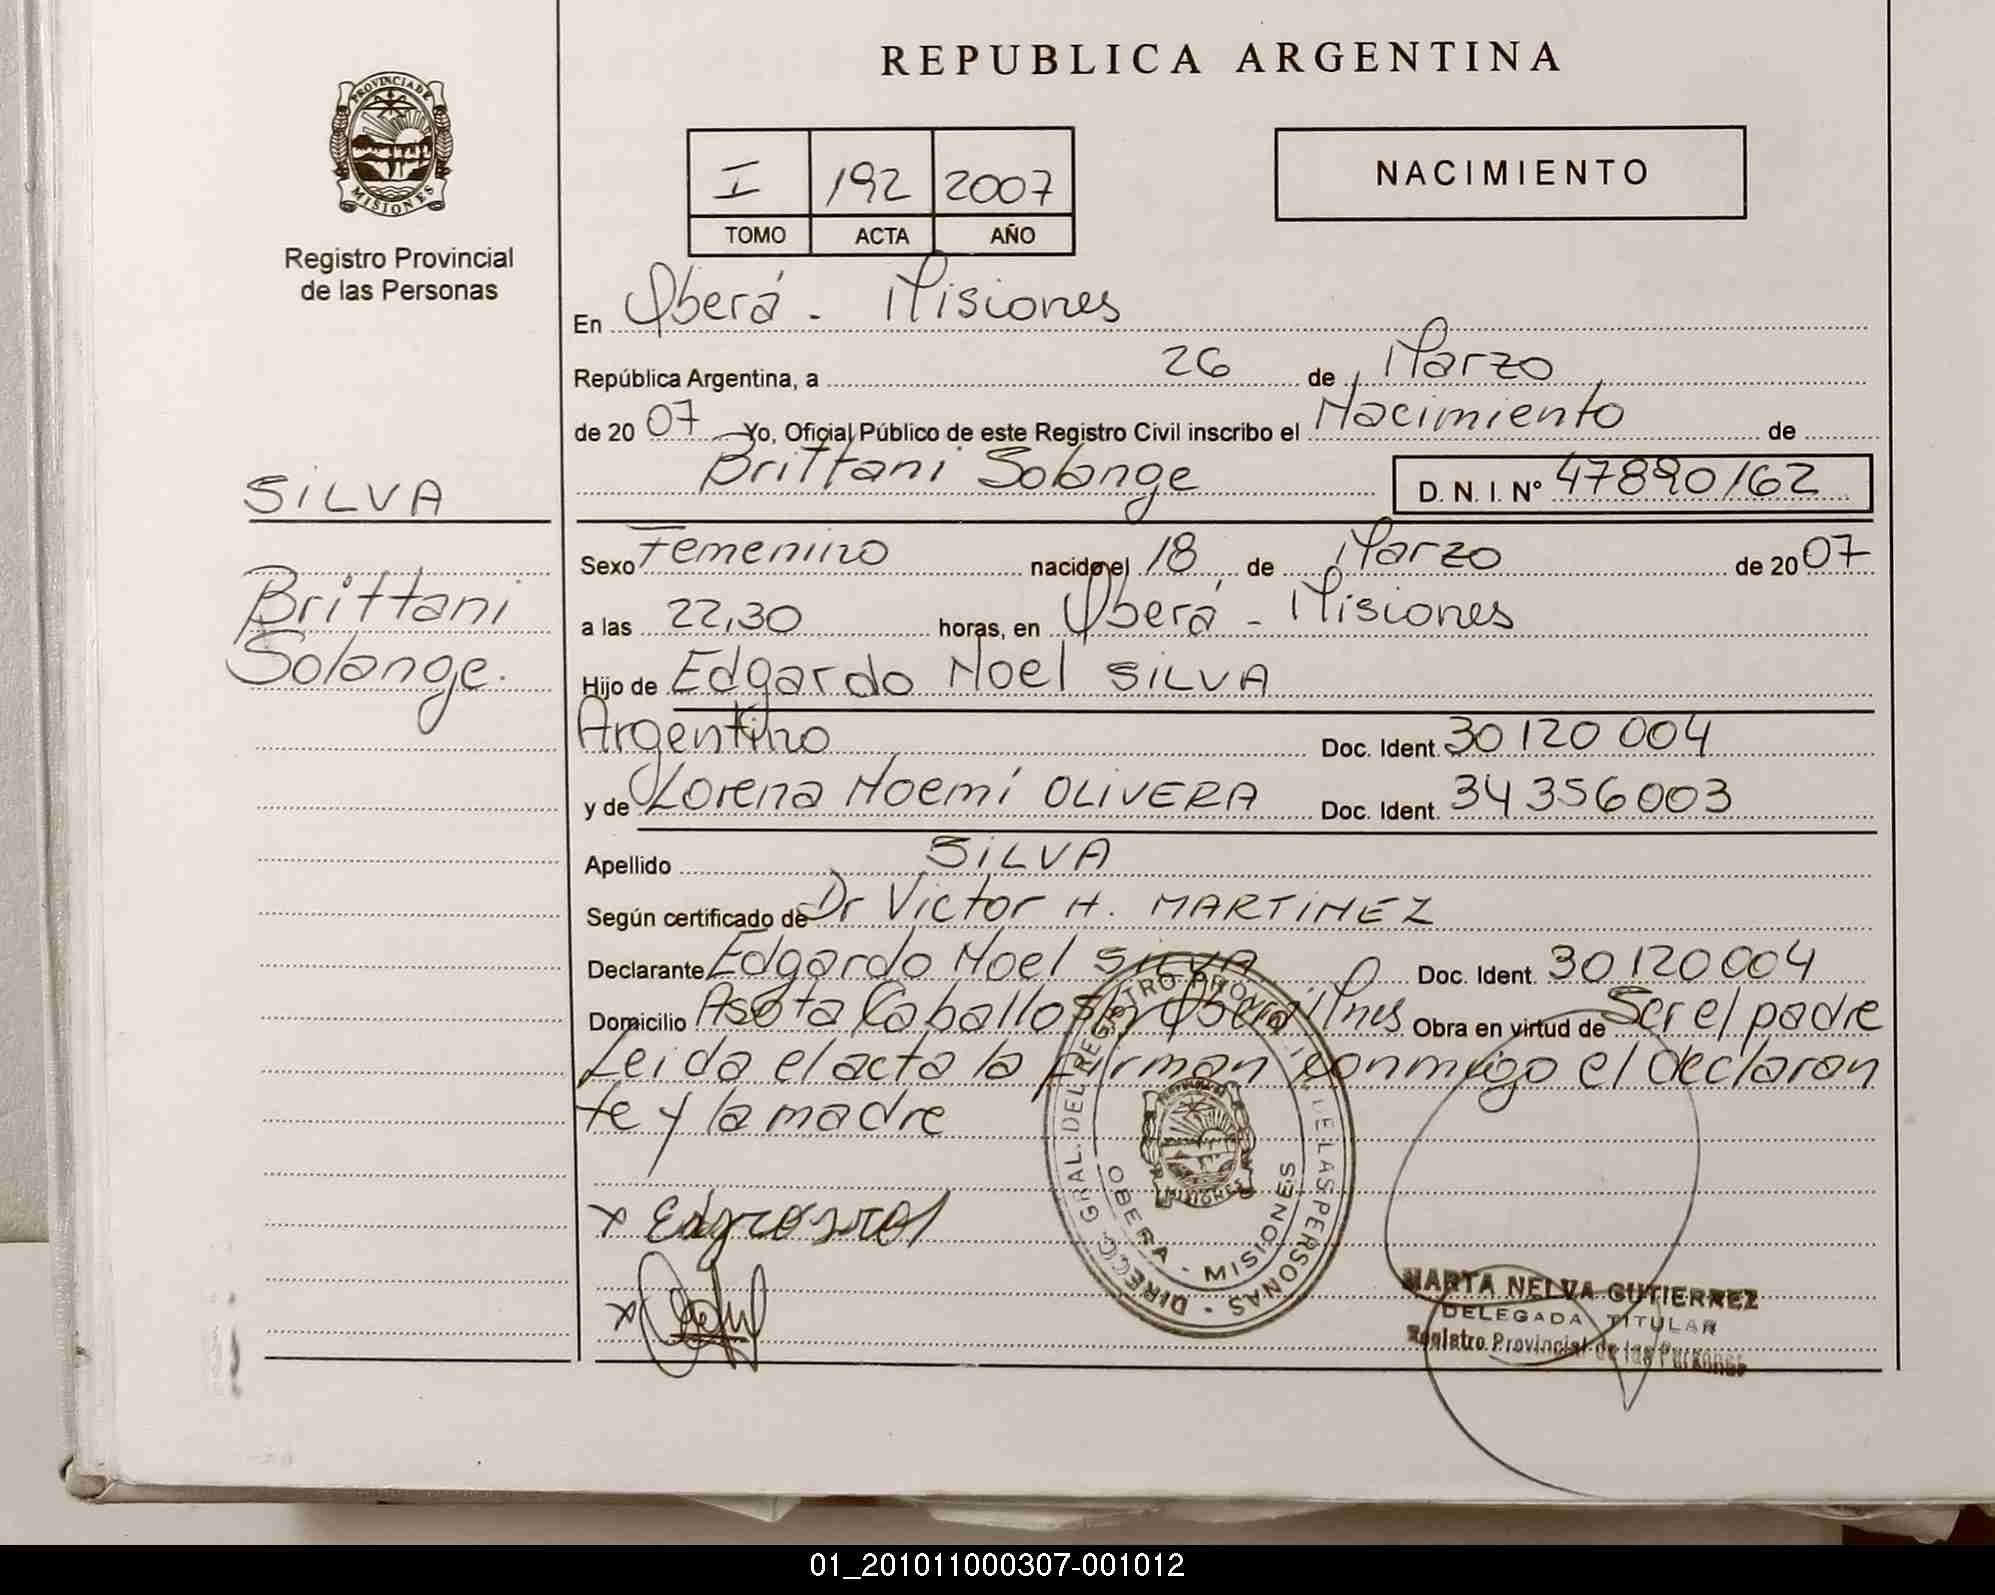 REPUBLICA ARGENTINA
PROVINCIA DE
MISIONES
Registro Provincial
de las Personas
I 192 2007
TOMO ACTA AÑO
NACIMIENTO
En Oberá - Misiones
República Argentina, a 26 de Marzo
de 20 07 Yo, Oficial Público de este Registro Civil inscribo el Nacimiento de
Brittani Solange D. N. I. Nº 47890162
SILVA
Brittani
Solange.
Sexo Femenino nacido el 18 de Marzo de 20 07
a las 22,30 horas, en Oberá - Misiones
Hijo de Edgardo Noel SILVA
Argentino Doc. Ident. 30 120 004
y de Lorena Noemí OLIVERA Doc. Ident. 34 356003
Apellido SILVA
Según certificado de Dr Victor H. MARTINEZ
Declarante Edgardo Noel SILVA Doc. Ident. 30 120 004
Domicilio Caballo Oberá Mnes Obra en virtud de Ser el padre
Leida el acta la firman conmigo el declaran
te y la madre
x
x
DIRECC. GRAL. DEL REGISTRO PROVINCIAL DE LAS PERSONAS
OBERA - MISIONES
MISIONES
MARTA NELVA GUTIERREZ
DELEGADA TITULAR
Registro Provincial de las Personas
01_201011000307-001012